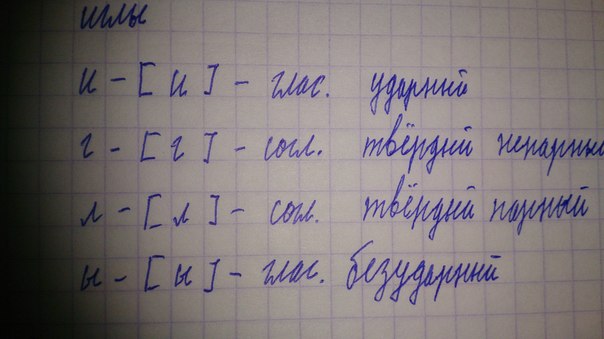 иглы
и - [ и ] - глас. ударный
г - [ г ] - согл. твёрдый непарный
л - [ л ] - согл. твёрдый парный
ы - [ ы ] - глас. безударный